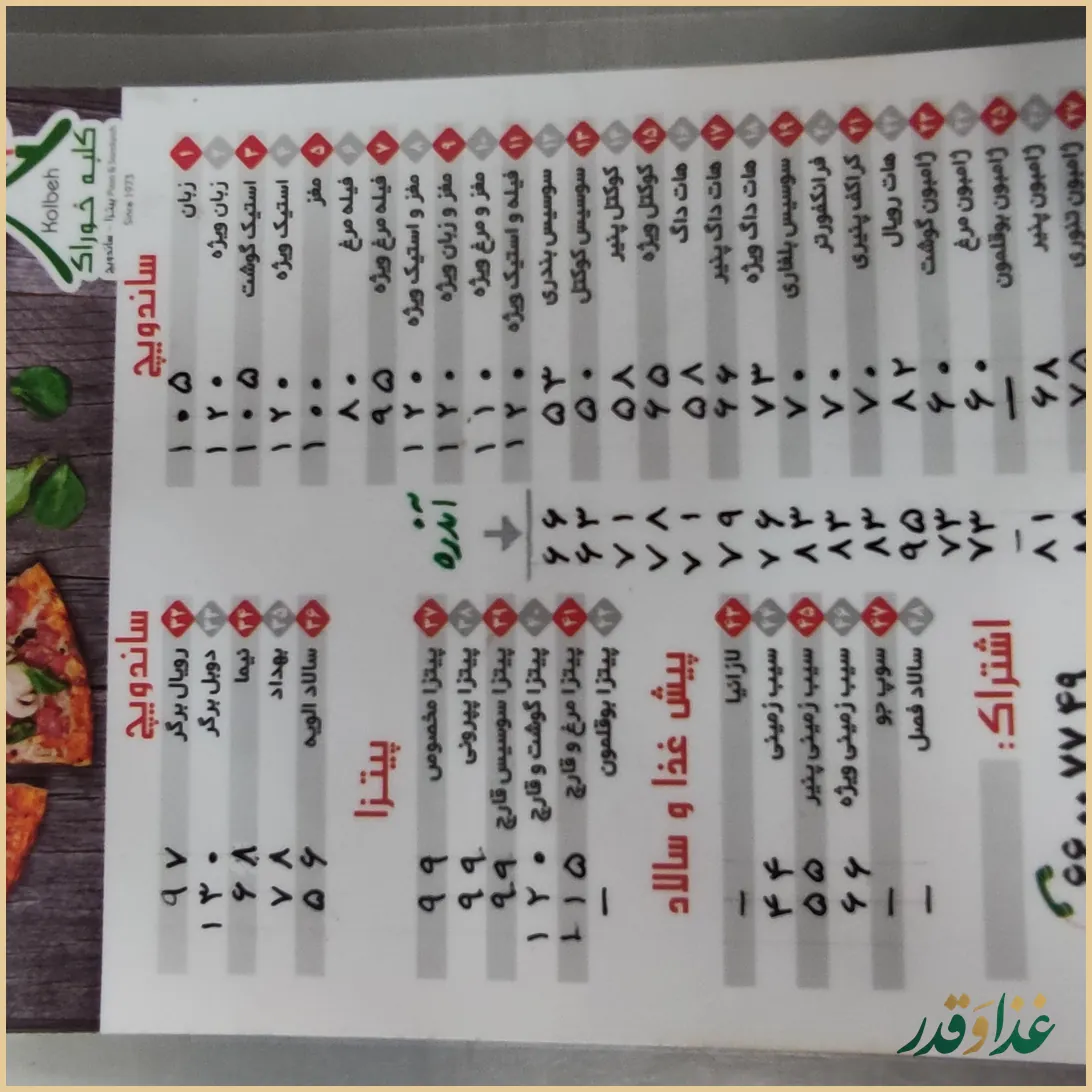 کلبه خوراک
Kolbeh
پیتزا - ساندویچ
Pizza & Sandwich
Since 1973
ساندویچ
۱ زبان ۱۰۵
۲ زبان ویژه ۱۲۰
۳ استیک گوشت ۱۰۵
۴ استیک ویژه ۱۲۰
۵ مغز ۱۰۰
۶ فیله مرغ ۸۰
۷ فیله مرغ ویژه ۹۵
۸ مغز و استیک ویژه ۱۲۰
۹ مغز و زبان ویژه ۱۲۰
۱۰ مغز و مرغ ویژه ۱۱۰
۱۱ فیله و استیک ویژه ۱۲۰
۱۲ سوسیس بندری ۵۳ ۶۶
۱۳ سوسیس کوکتل ۵۰ ۶۳
۱۴ کوکتل پنیر ۵۸ ۷۱
۱۵ کوکتل ویژه ۶۵ ۷۸
۱۶ هات داگ ۵۸ ۷۱
۱۷ هات داگ پنیر ۶۶ ۷۹
۱۸ هات داگ ویژه ۷۳
۱۹ سوسیس بلغاری ۷۰
۲۰ فرانکفورتر ۷۰ ۸۳
۲۱ کراکف پنیری ۷۰ ۸۳
۲۲ هات رویال ۸۲ ۹۵
۲۳ ژامبون گوشت ۶۰ ۷۳
۲۴ ژامبون مرغ ۶۰ ۷۳
۲۵ ژامبون بوقلمون — —
۲۶ ژامبون پنیر ۶۸ ۸۱
۲۷ ژامبون تنوری ۷۵ ۸۸
ساندویچ
۳۲ رویال برگر ۹۷
۳۳ دوبل برگر ۱۳۰
۳۴ نیما ۶۸
۳۵ بهداد ۷۸
۳۶ سالاد الویه ۵۶
پیتزا
۳۷ پیتزا مخصوص ۹۹
۳۸ پیتزا پپرونی ۹۹
۳۹ پیتزا سوسیس قارچ ۹۹
۴۰ پیتزا گوشت و قارچ ۱۲۰
۴۱ پیتزا مرغ و قارچ ۱۱۵
۴۲ پیتزا بوقلمون —
پیش غذا و سالاد
۴۳ لازانیا —
۴۴ سیب زمینی ۴۴
۴۵ سیب زمینی پنیر ۵۵
۴۶ سیب زمینی ویژه ۶۶
۴۷ سوپ جو —
۴۸ سالاد فصل —
اشتراک:
غذا و قدر